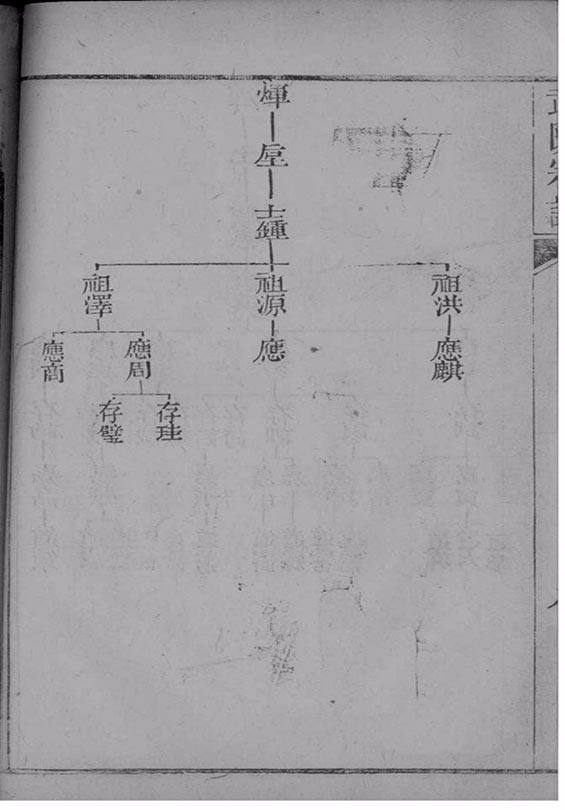 煇
垕
士鍾
祖洪
祖源
祖澤
應麒
應
應周
應商
存珪
存璧